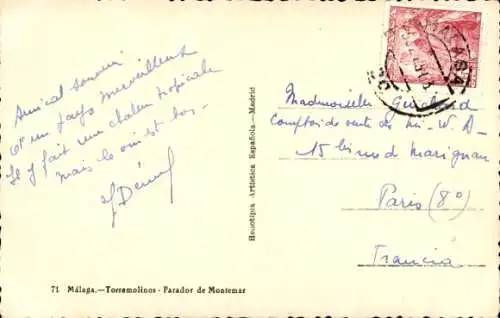 Amical souvenir
d'un pays merveilleux
Il y fait une chaleur tropicale
mais le vin est bon.
Mademoiselle
Comptoir de vente de
15 bis rue de Marignan
Paris (8°)
Francia
Heliotipia Artística Española.—Madrid
71 Málaga.—Torremolinos - Parador de Montemar